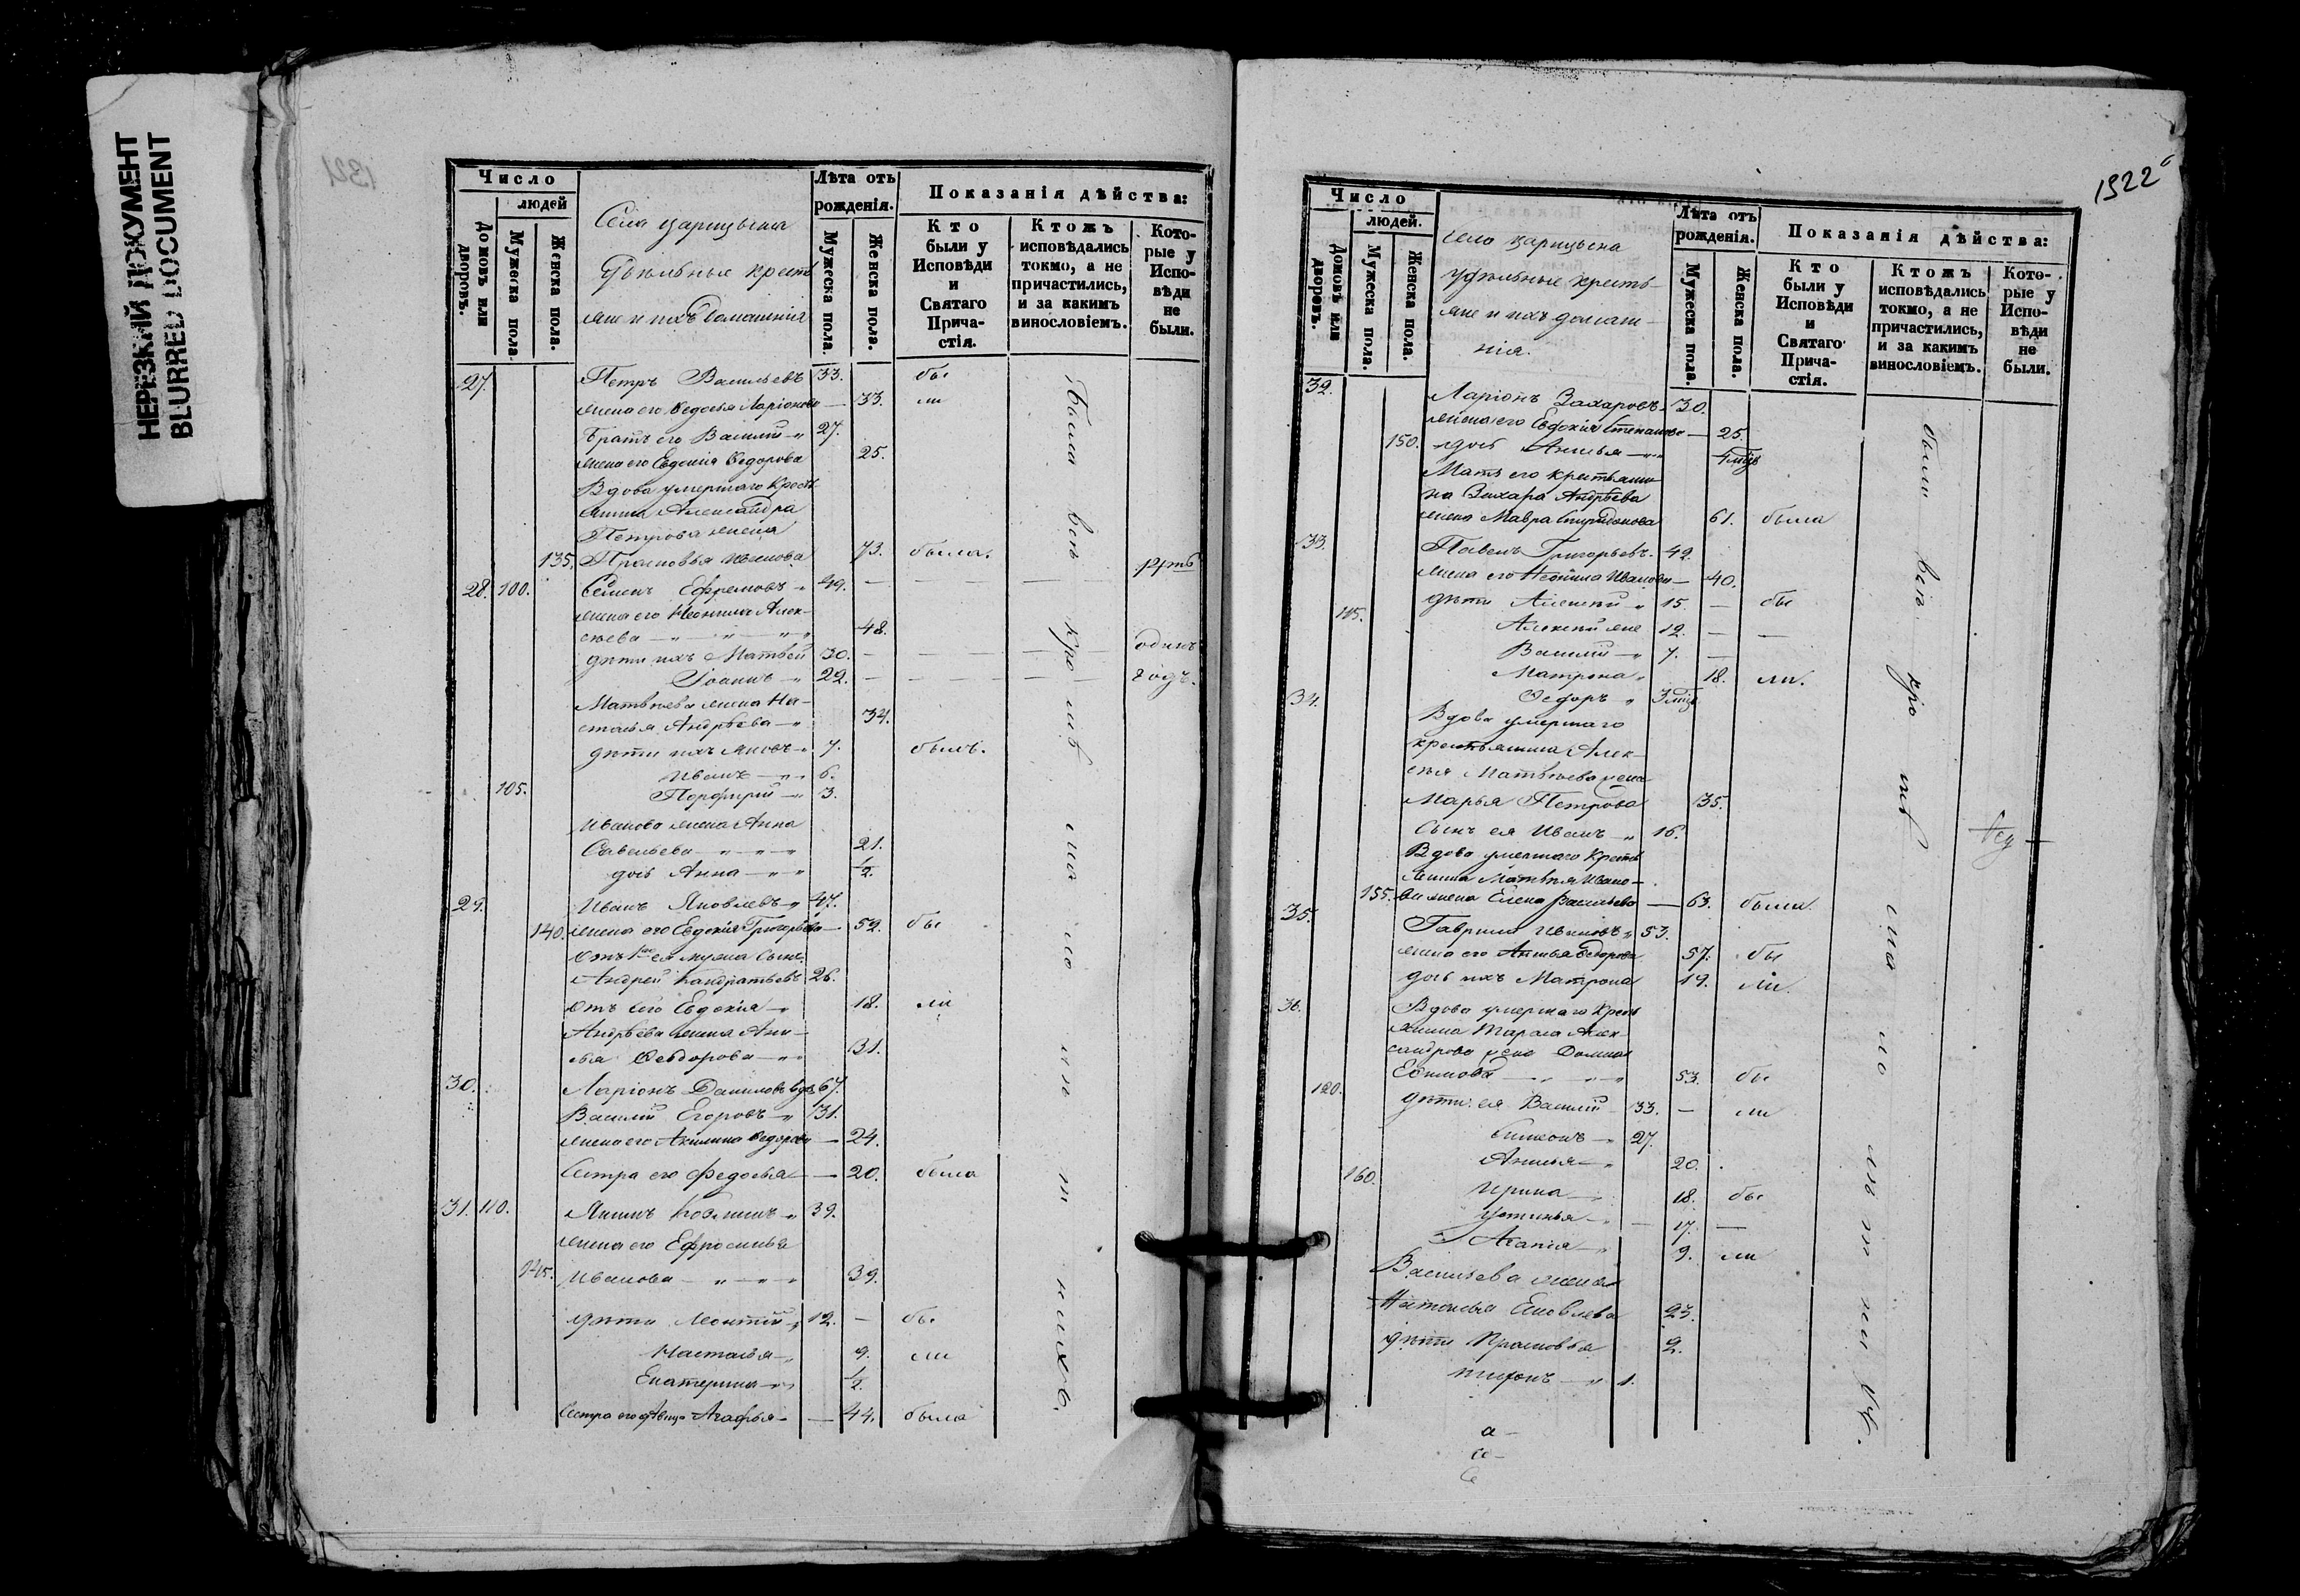 НЕРЕЗКИЙ ДОКУМЕНТ
BLURRED DOCUMENT
1321
Число
людей
Домовъ или дворовъ.
Мужеска пола.
Женска пола.
Села Царицына
Удѣльные кресть
яне и ихъ домашнія
Лѣта отъ рожденія.
Мужеска пола.
Женска пола.
Показанія дѣйства:
Кто были у Исповѣди и Святаго Прича-стія.
Ктожъ исповѣдались токмо, а не причастились, и за какимъ винословіемъ.
Кото-рые у Испо-вѣди не были.
27. Петръ Васильевъ 33. бы
жена его Ѳедосья Ларіонова — 33. ли
Братъ его Василій 27.
жена его Евдокія Ѳедорова 25.
Вдова умершаго кресть
янина Александра
Петрова жена
135. Прасковья Иванова 73. была.
28. 100. Семенъ Ефремовъ 49. — — — —
жена его Неонила Алек-
сѣева 48.
дѣти ихъ Матвей 30. — — — — одинъ
Іоаннъ 22. — — — — годъ.
Матвѣева жена На-
сталья Андрѣева 34.
дѣти ихъ Яковъ 7. былъ.
Иванъ 6.
105. Порфирій 3.
Иванова жена Анна
Савельева 21.
дочь Анна 1/2.
29. Иванъ Яковлевъ 47.
140. жена его Евдокія Григорьева — 52. бы
отъ 1го ея мужа сынъ
Андрей Кандратьевъ 26.
отъ сего Евдокія 18. ли
Андрѣева жена Ани-
сья Ѳеодорова 31.
30. Ларіонъ Даниловъ вдов. 67.
Василій Егоровъ 31.
жена его Акилина Ѳедорова — 24.
Сестра его Федосья — 20. была
31. 110. Якимъ Козминъ 39.
жена его Ефросинья
145. Иванова 39.
дѣти Леонтій 12. — бы
Настасья 9. ли
Екатерина 1/2.
Сестра его дѣвица Агафья — 44. была
1322
Число
людей.
Домовъ или дворовъ.
Мужеска пола.
Женска пола.
Село Царицына
Удѣльные кресть-
яне и ихъ домаш-
нія.
Лѣта отъ рожденія.
Мужеска пола.
Женска пола.
Показанія дѣйства:
Кто были у Исповѣди и Святаго Прича-стія.
Ктожъ исповѣдались токмо, а не причастились, и за какимъ винословіемъ.
Кото-рые у Испо-вѣди не были.
32. Ларіонъ Захаровъ 30.
жена его Евдокія Степанова — 25.
150. дочь Анисья 4 мцъ
Мать его крестьяни-
на Захара Андрѣева
жена Мавра Спиридонова 61. была
33. Павелъ Григорьевъ 42.
жена его Неонила Иванова — 40.
дѣти Алексѣй 15. — бы
115. Алексѣй же 12. — —
Василій 7. —
Матрона 18. ли.
Ѳедоръ 3 мцъ
34. Вдова умершаго
крестьянина Алек-
сѣя Матвѣева жена
Марья Петрова 35.
Сынъ ея Иванъ 16.
Вдова умершаго кресть
янина Матвѣя Ивано-
155. ва жена Елена Васильева — 63. была.
35. Гаврила Ивановъ 53.
жена его Анисья Ѳедорова 57. бы
дочь ихъ Матрона 19. ли.
36. Вдова умершаго кресть
янина Тараса Алек-
сандрова жена Домна
Ефимова 53. бы
120. дѣти ея Василій 33. — ли
Симеонъ 27.
Анисья 20.
160. Ирина 18. бы
Устинья — 17. —
Агапія 9. ли
Васильева жена
Наталья Яковлева 23.
дѣти Прасковья 2.